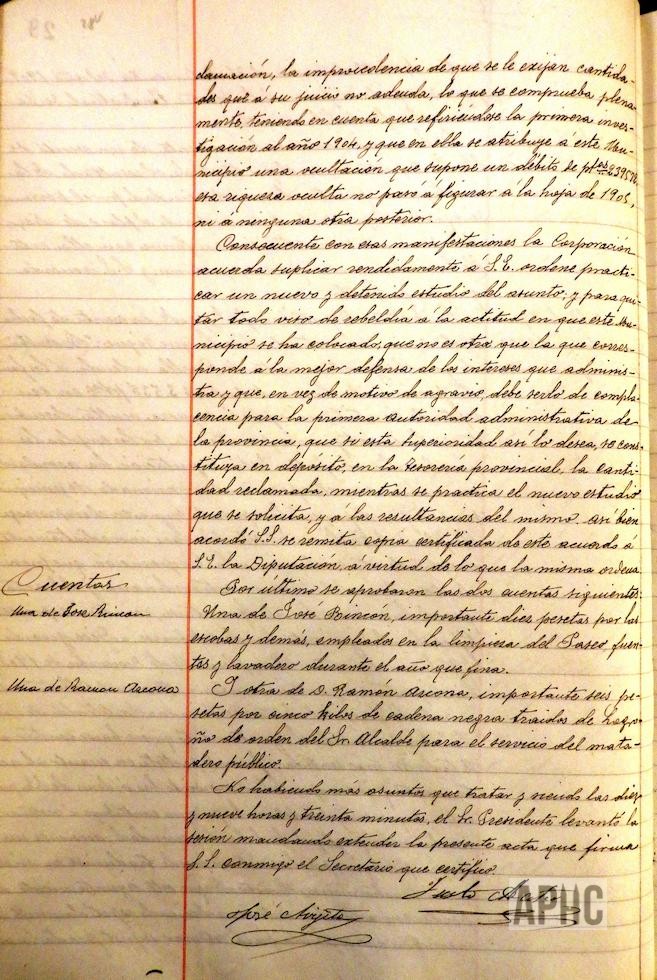 29
clamación, la improcedencia de que se le exijan cantida-
des que á su juicio no adeuda, lo que se comprueba plena-
mente, teniendo en cuenta que refiriéndose la primera inves-
tigación al año 1904, y que en ella se atribuye á este Mu-
nicipio una ocultación que supone un débito de ptas
esa riqueza oculta no pasó á figurar á la hoja de 1905,
ni á ninguna otra posterior.
Consecuente con esas manifestaciones la Corporación
acuerda suplicar rendidamente á S.E. ordene practi-
car un nuevo y detenido estudio del asunto; y para qui-
tar todo viso de rebeldía á la actitud en que este Mu-
nicipio se ha colocado, que no es otra que la que corres-
ponde á la mejor defensa de los intereses que adminis-
tra y que, en vez de motivo de agravio, debe serlo de compla-
cencia para la primera autoridad administrativa de
la provincia, que si esta superioridad así lo desea, se cons-
tituya en depósito, en la Tesorería provincial, la canti-
dad reclamada, mientras se practica el nuevo estudio
que se solicita, y á las resultancias del mismo. Así bien
acordó S.S. se remita copia certificada de este acuerdo á
S.E. la Diputación, á virtud de lo que la misma ordena.
Cuentas
Por último se aprobaron las dos cuentas siguientes:
Una de José Rincon
Una de José Rincón, importante diez pesetas por las
escobas y demás, empleados en la limpieza del Paseo, fuen-
tes y lavadero durante el año que fina.
Una de Ramon Ascona
Y otra de D. Ramón Ascona, importante seis pe-
setas por cinco kilos de cadena negra traidos de Logro-
ño de orden del Sr. Alcalde para el servicio del mata-
dero público.
No habiendo más asuntos que tratar y siendo las diez
y nueve horas y treinta minutos, el Sr. Presidente levantó la
sesión mandando extender la presente acta que firma
S.S. conmigo el Secretario que certifico.
Justo
José
APHC